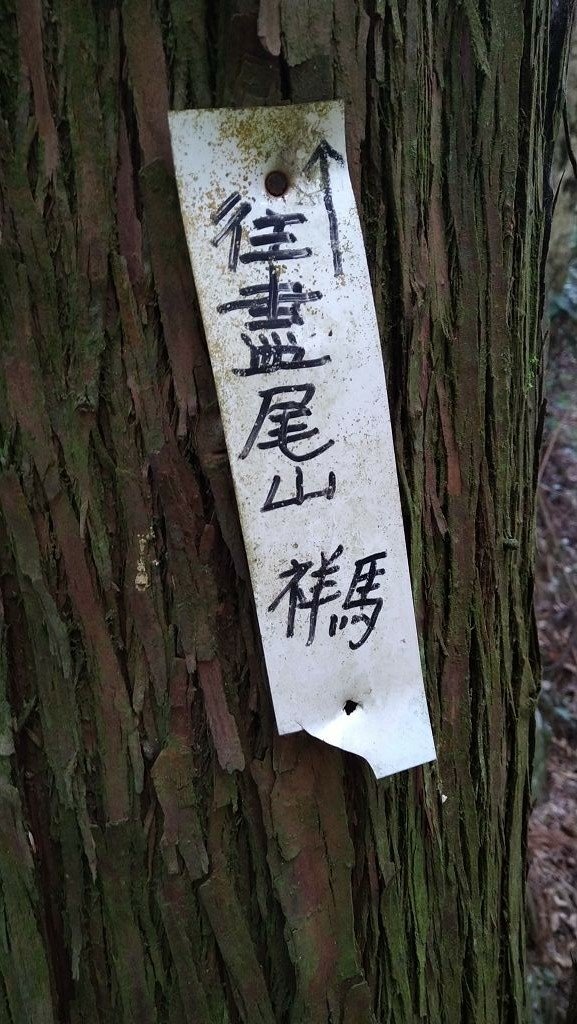 往盡尾山
祥馬